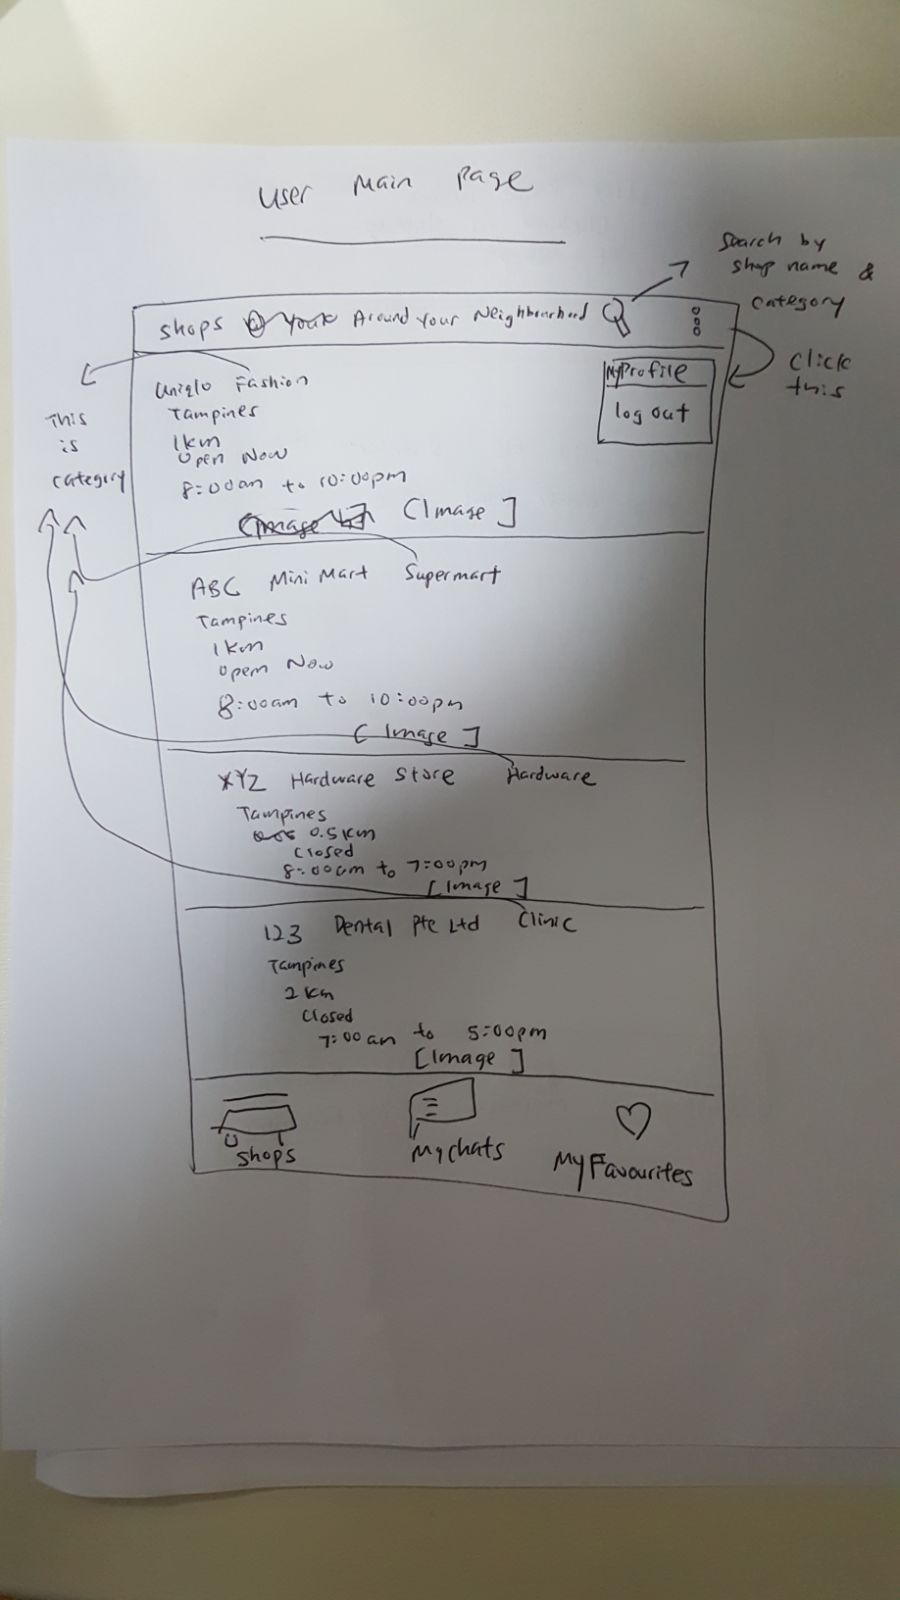 User Main Page
Search by
shop name &
category
Shops Around Your Neighbourhood
Click
this
Uniqlo Fashion
Tampines
1km
Open Now
8:00am to 10:00pm
[Image]
My Profile
log out
This
is
category
ABC Mini Mart Supermart
Tampines
1km
Open Now
8:00am to 10:00pm
[Image]
XYZ Hardware Store Hardware
Tampines
0.5km
Closed
8:00am to 7:00pm
[Image]
123 Dental Pte Ltd Clinic
Tampines
2km
Closed
7:00am to 5:00pm
[Image]
Shops
My chats
My Favourites